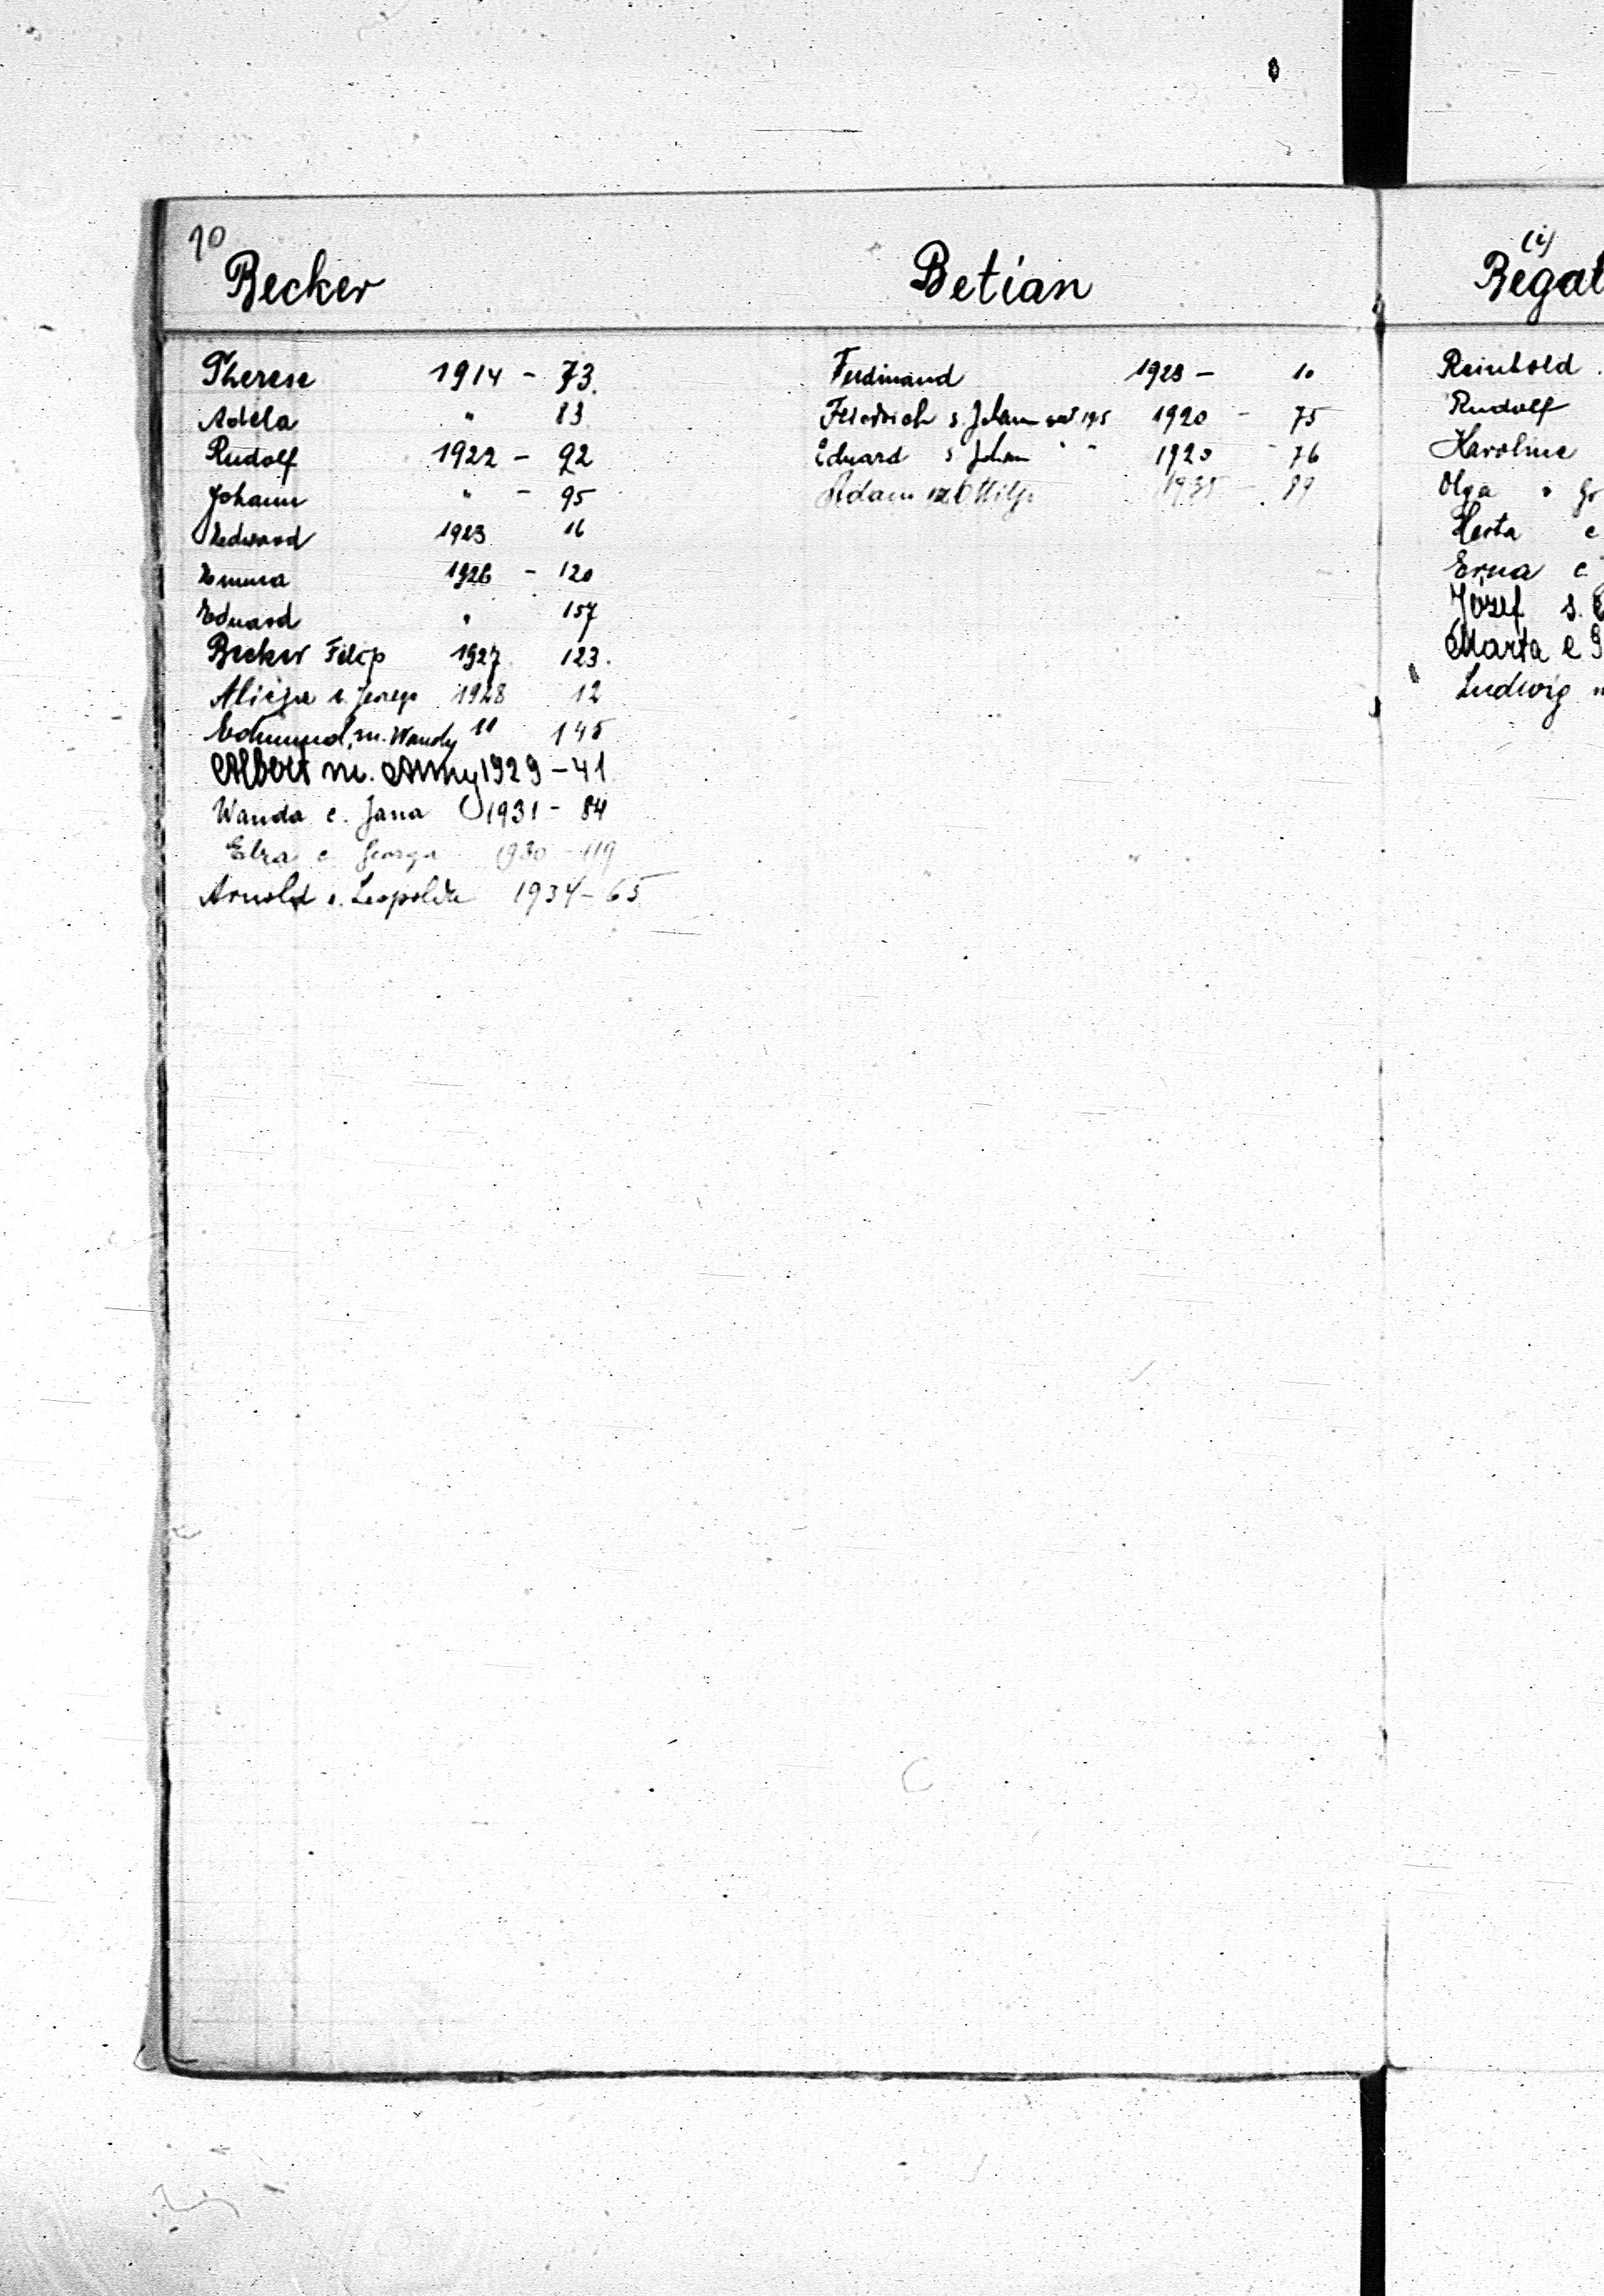 10
Becker
Therese 1914 - 73.
Adela " 83
Rudolf 1922 - 92
Johann " - 95
Edward 1923 16
Emma 1926 - 120
Eduard " 157
Becker Filip 1927 123.
Alicja c. Jerzego 1928 12
Edmund, m. Wandy 11 145
Albert m. Anny 1929 - 41
Wanda c. Jana 1931 - 84
Elza c. Georga 1930 - 119
Arnold s. Leopolda 1934 - 65
Betian
Ferdinand 1923 - 10
Friedrich s. Johann 1920 - 75
Eduard s Johann " " 1920 - 76
Adam 1935 - 89
(i)
Begal
Reinhold
Rudolf
Karoline
Olga
Herta c
Erna c
Józef s.
Marta c
Ludwig